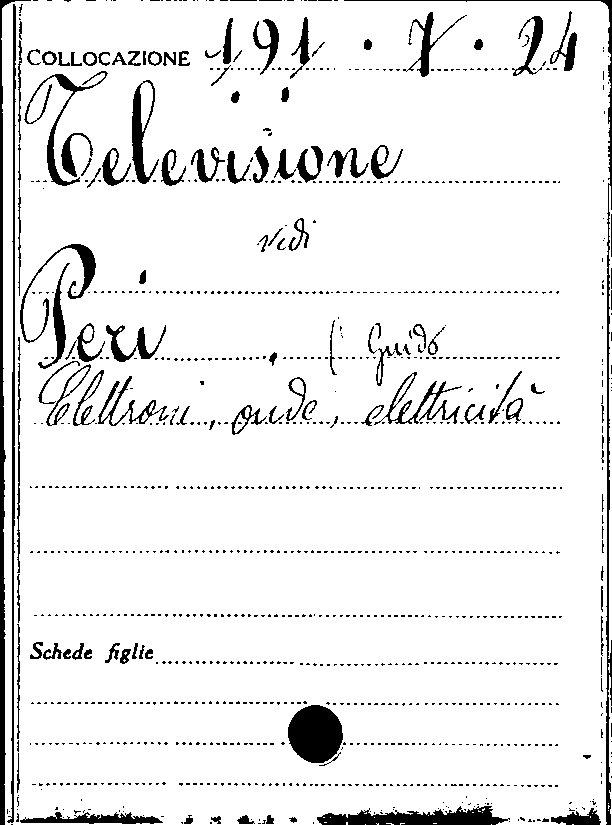 COLLOCAZIONE 191 . 7 . 24
Televisione
vidi
Peri . ( Guido
Elettroni, onde, elettricità
Schede figlie